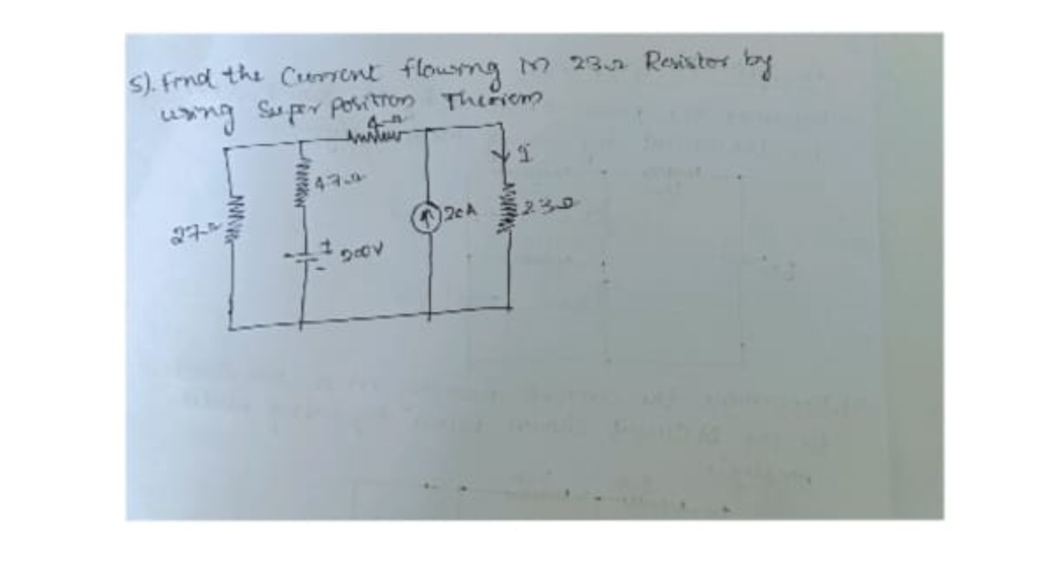 5). Find the Current flowing in 23Ω Resistor by
using Super position Theorem
4Ω
I
47Ω
27Ω
20A
23Ω
+
200V
-